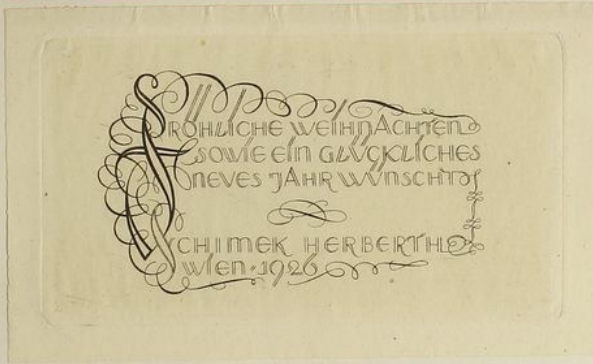 FRÖHLICHE WEIHNACHTEN
SOWIE EIN GLÜCKLICHES
NEUES JAHR WÜNSCHT
SCHIMEK HERBERTH
WIEN · 1926